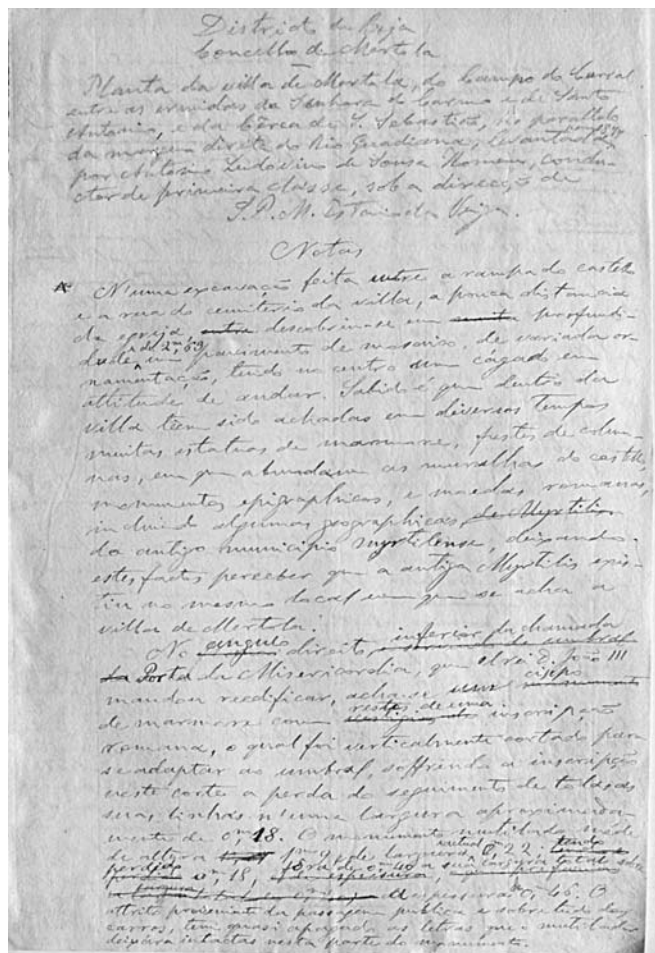 Districto de Beja
Concelho de Mertola
Planta da villa de Mertola, do Campo do Carral
entre as ermidas da Senhora do Carmo e de Santo
Antonio, e da Cêrca de S. Sebastião, no parallelo
da margem direita do Rio Guadiana, levantada
por Antonio Ludovino de Sousa Homem, condu-
ctor de primeira classe, sob a direcção de
S. P. M. Estacio da Veiga.
Notas
A N'uma excavação feita entre a rampa do castello
e a rua do cemiterio da villa, a pouca distancia
da egreja, descobriu-se em profundi-
dade de 2,m69 um pavimento de mosaico, de variada or-
namentação, tendo no centro um cágado em
attitude de andar. Sabido é que dentro da
villa teem sido achadas em diversos tempos
muitas estatuas de marmore, fustes de colum-
nas, em que abundam as muralhas do castello,
monumentos epigraphicos, e moedas romanas,
incluindo algumas geographicas de Myrtilis
do antigo municipio myrtilense, deixando
estes factos perceber que a antiga Myrtilis exis-
tiu no mesmo local em que se acha a
villa de Mertola.
No angulo direito inferior da chamada
Porta da Misericordia, que elrei D. João III
mandou reedificar, acha-se um cippo
de marmore com restos de uma inscripção
romana, o qual foi verticalmente cortado para
se adaptar ao umbral, soffrendo a inscripção
n'este corte a perda do seguimento de todas as
suas linhas n'uma largura aproximada-
mente de 0,m18. O monumento mutilado mede
de altura de largura actual 0,m22, tendo
perdido 0,m18,
a espessura 0,m46. O
attrito proveniente da passagem publica e sobretudo dos
carros, tem quasi apagado as letras que o mutilador
deixára intactas nesta parte do monumento.